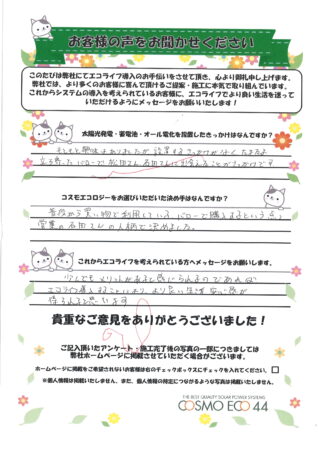 お客様の声をお聞かせください
このたびは弊社にてエコライフ導入のお手伝いをさせて頂き、心より御礼申し上げます。
弊社では、より多くのお客様に喜んで頂けるご提案・施工に本気で取り組んでいます。
これからシステムの導入を考えられているお客様に、エコライフでより良い生活を送って
いただけるようにメッセージをお願いいたします！
太陽光発電・蓄電池・オール電化を設置したきっかけはなんですか？
もともと興味はありましたが、設置するきっかけがなく たまたま
立ち寄った バローで 松田さん 石田さんに出会えることがきっかけです
コスモエコロジーをお選びいただいた決め手はなんですか？
普段から買い物で利用している バローで購入するという点、
営業の石田さんの人柄で決めました。
これからエコライフを考えられている方へメッセージをお願いします。
少しでもメリットがあると感じられるのであれば
エコライフ導入することにより、より良い生活 安心感が
得られると思います
貴重なご意見をありがとうございました！
ご記入頂いたアンケート・施工完了後の写真の一部につきましては
弊社ホームページに掲載させていただく場合がございます。
ホームページに掲載をご希望されないお客様は右のチェックボックスにチェックを入れてください。
※個人情報は掲載いたしません、また、個人情報の特定につながるような写真は掲載いたしません。
THE BEST QUALITY SOLAR POWER SYSTEMS
COSMO ECO 44